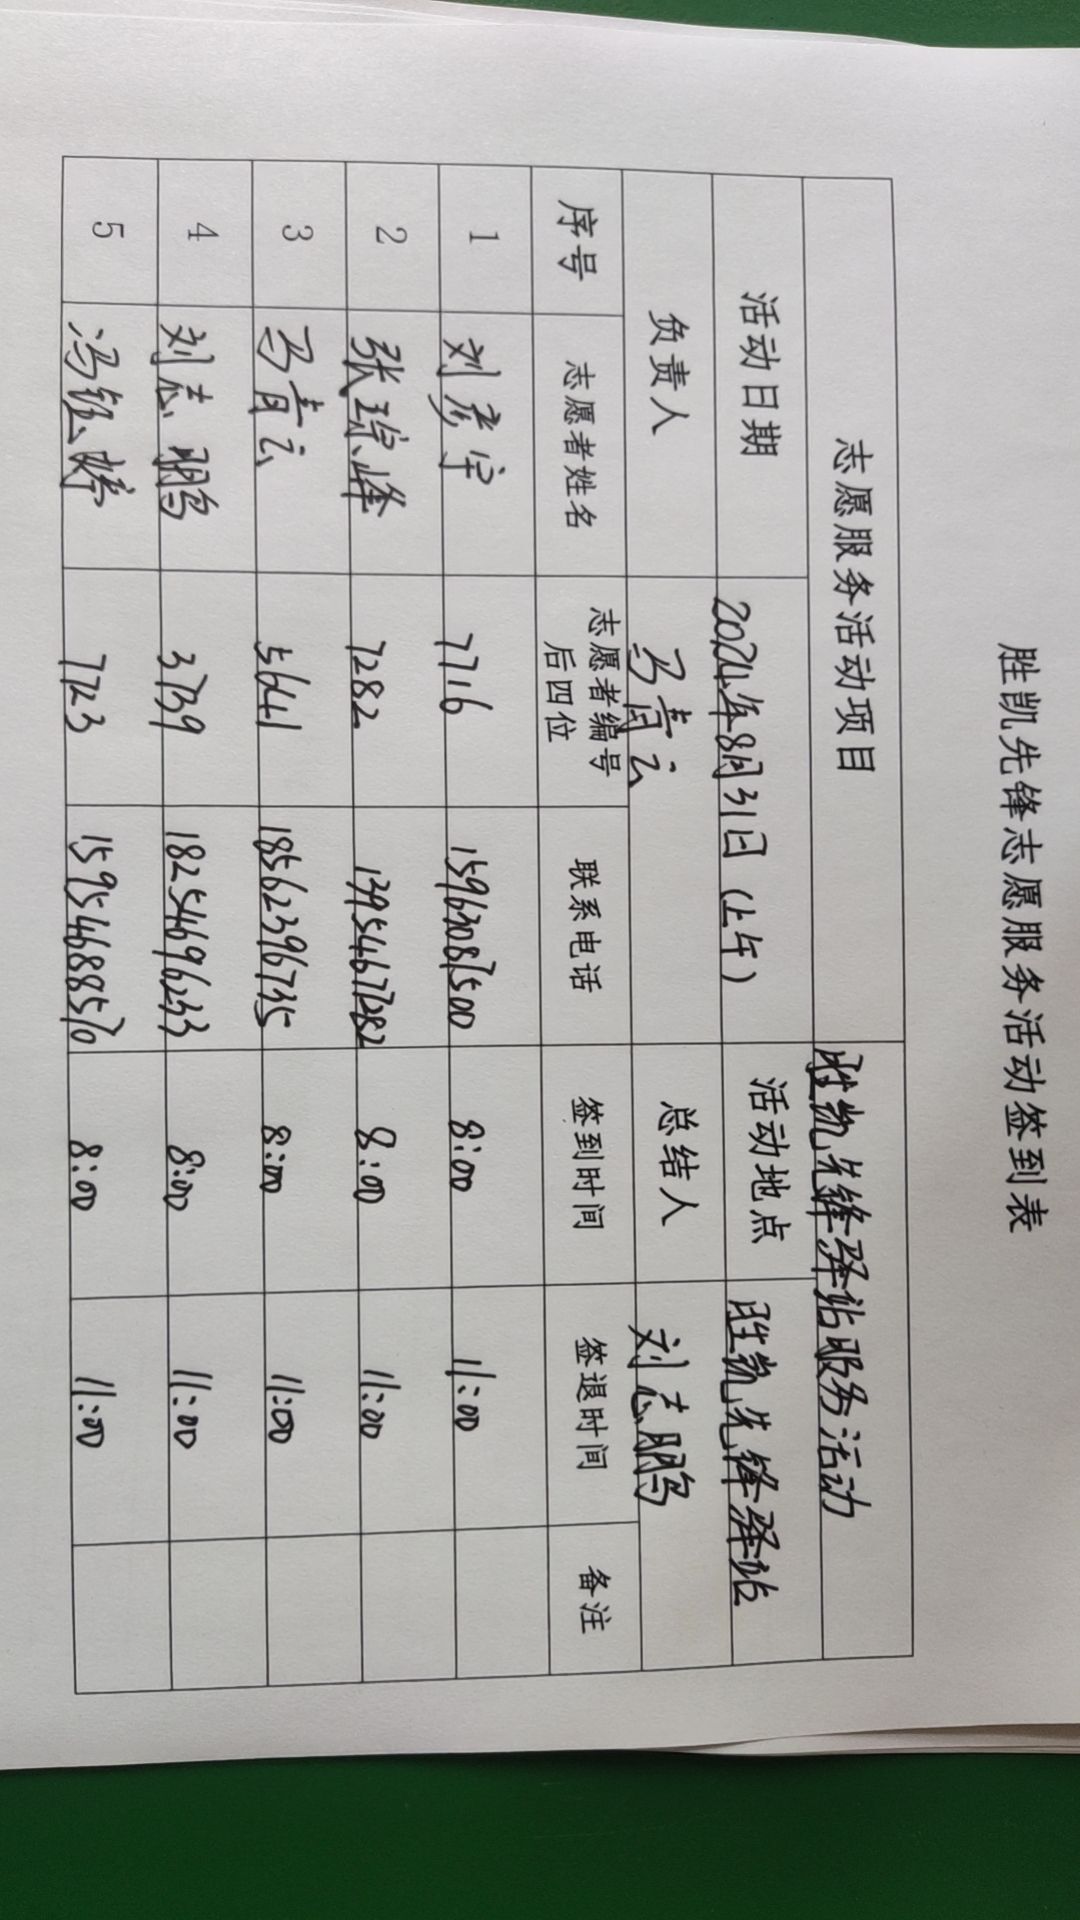 胜凯先锋志愿服务活动签到表
志愿服务活动项目 胜凯先锋驿站服务活动
活动日期 2024年8月31日(上午) 活动地点 胜凯先锋驿站
负责人 马青云 总结人 刘志鹏
序号 志愿者姓名 志愿者编号后四位 联系电话 签到时间 签退时间 备注
1 刘彦宇 7716 15963087500 8:00 11:00
2 张琮峰 7282 13954677282 8:00 11:00
3 马青云 5641 18562396735 8:00 11:00
4 刘志鹏 3739 18254696233 8:00 11:00
5 7723 15954688570 8:00 11:00